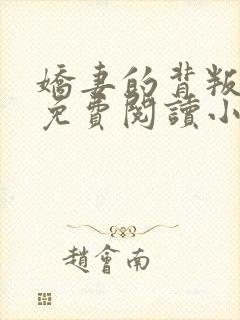 嬌妻的背叛
免費閱讀小
趙會南